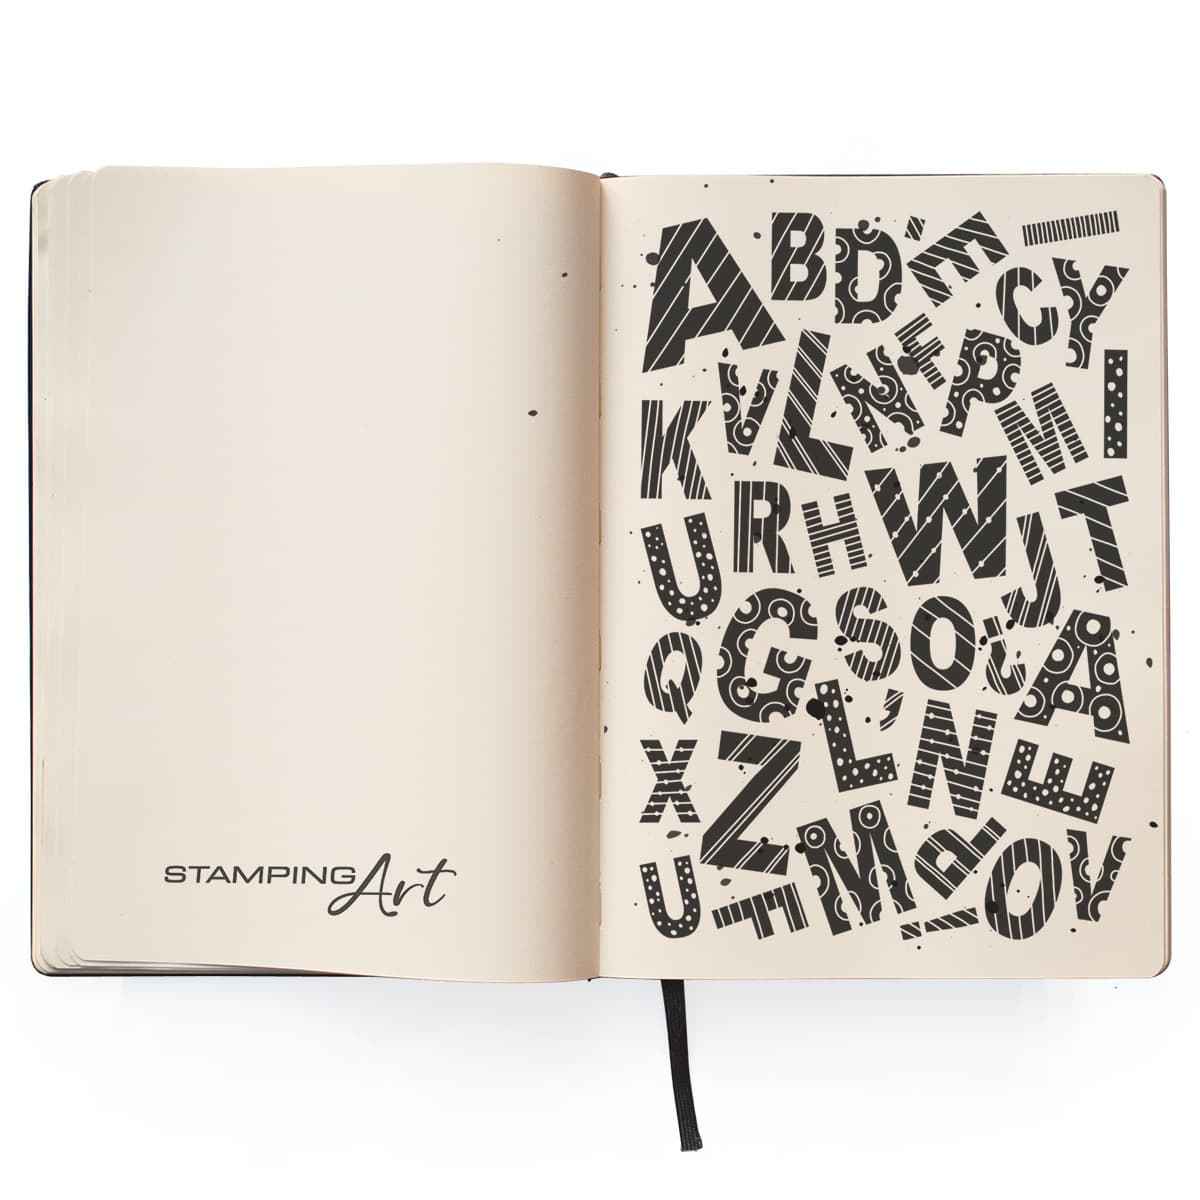 STAMPING Art
A B D ' E I
C Y
K V L N F P M I
U R H W J T
Q G S O ¿ A
X Z L , N E
U F M ! P O V